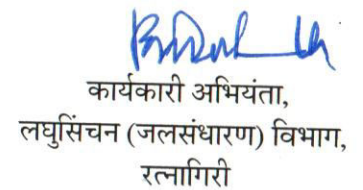 कार्यकारी अभियंता,
लघुसिंचन (जलसंधारण) विभाग,
रत्नागिरी